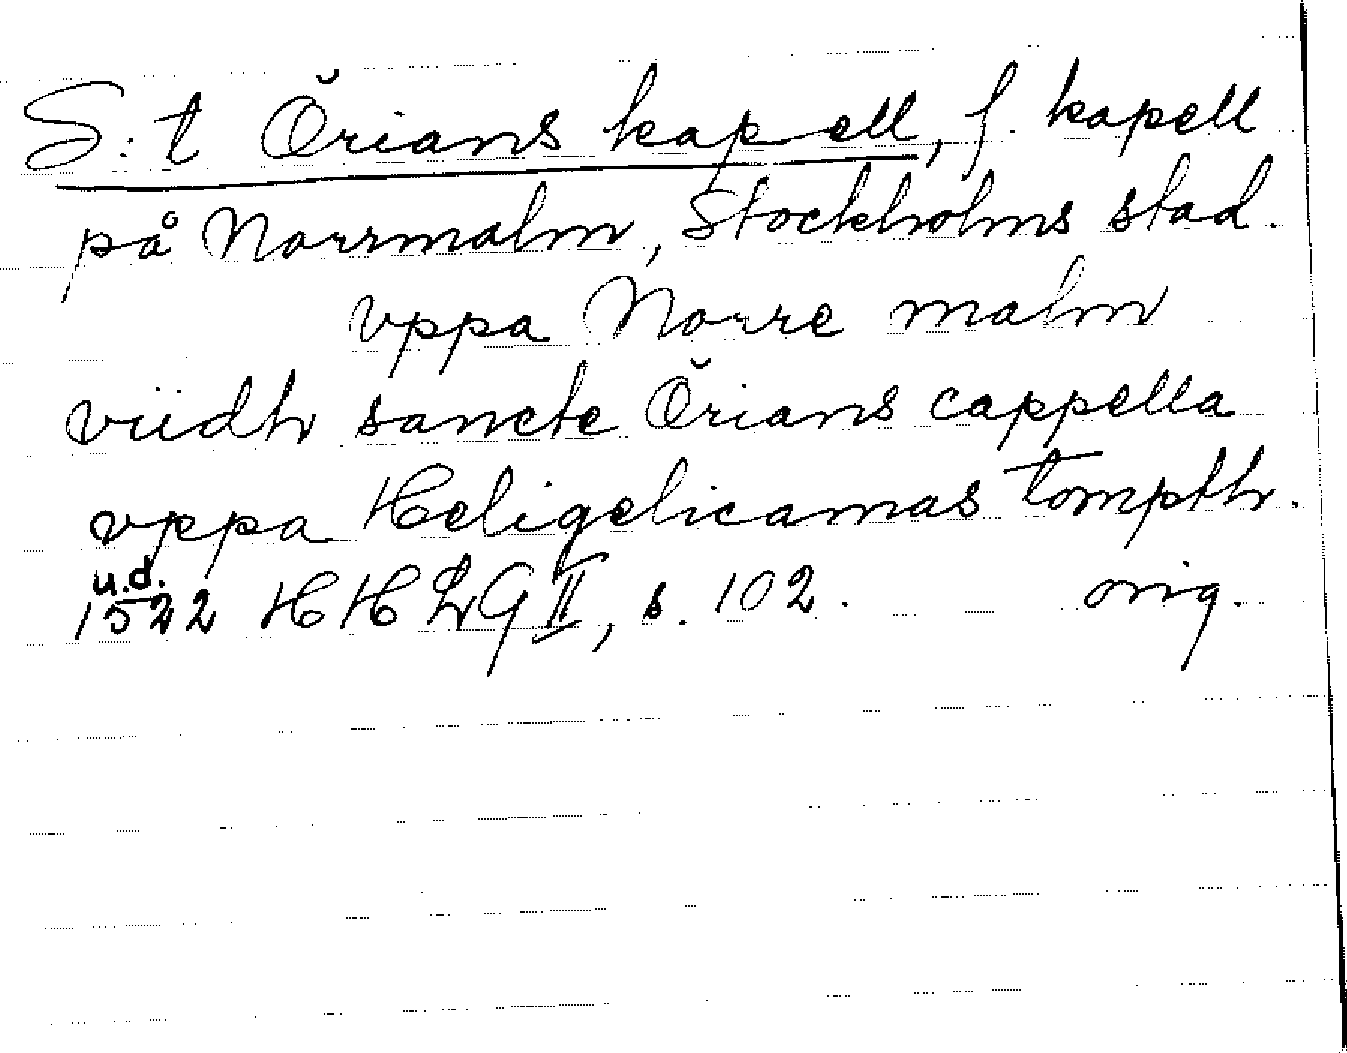 S:t Örians kapell, f. kapell
på Norrmalm, Stockholms stad.
vppa Norre malm
viidh sancte Örians cappella
vppa Heligelicamas tompth.
u.d.
1522 HHLG II, s. 102. orig.